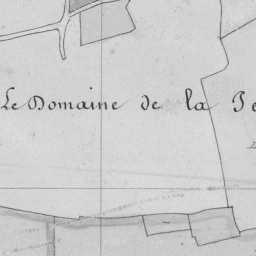 Le Domaine de la